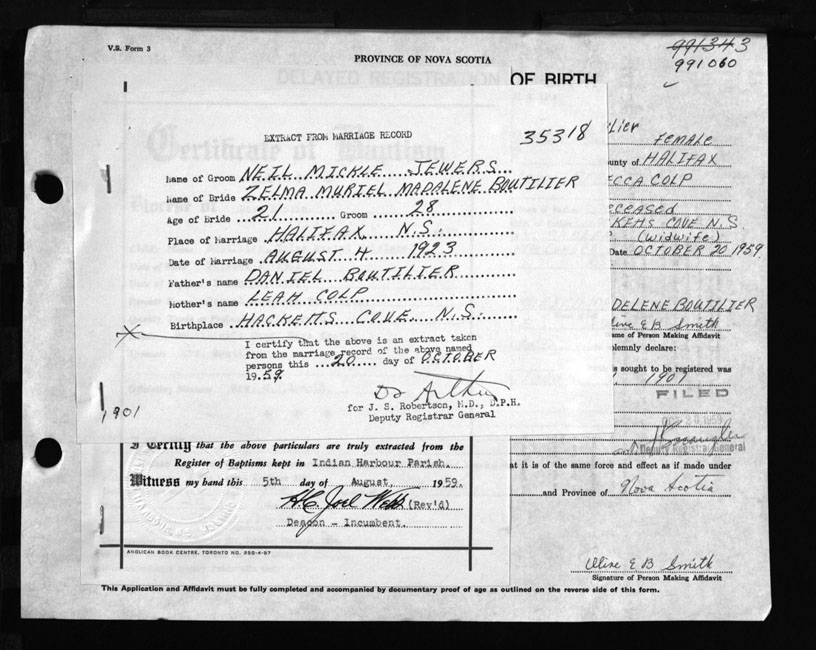 V.S. Form 3
PROVINCE OF NOVA SCOTIA
991343
991060
DELAYED REGISTRATION OF BIRTH
EXTRACT FROM MARRIAGE RECORD
35318
Name of Groom NEIL MICKLE JEWERS
Name of Bride ZELMA MURIEL MADALENE BOUTILIER
Age of Bride 21 Groom 28
Place of Marriage HALIFAX N.S.
Date of Marriage AUGUST 4 1923
Father's name DANIEL BOUTILIER
Mother's name LEAH COLP
Birthplace HACKETTS COVE N.S.
I certify that the above is an extract taken
from the marriage record of the above named
persons this 20 day of OCTOBER
1959
for J. S. Robertson, M.D., D.P.H.
Deputy Registrar General
1901
Certificate of Baptism
lier
FEMALE
unty of HALIFAX
ECCA COLP
ECEASED
KETTS COVE N.S
(widwife)
Date OCTOBER 20 1959
DELENE BOUTILIER
Olive E B Smith
ame of Person Making Affidavit
olemnly declare:
s sought to be registered was
1901
FILED
Deputy Registrar General
at it is of the same force and effect as if made under
and Province of Nova Scotia
I Certify that the above particulars are truly extracted from the
Register of Baptisms kept in Indian Harbour Parish.
Witness my hand this 5th day of August, 1959.
(Rev'd)
Deacon - Incumbent.
ANGLICAN BOOK CENTRE, TORONTO NO. 250-4-57
Olive E B Smith
Signature of Person Making Affidavit
This Application and Affidavit must be fully completed and accompanied by documentary proof of age as outlined on the reverse side of this form.